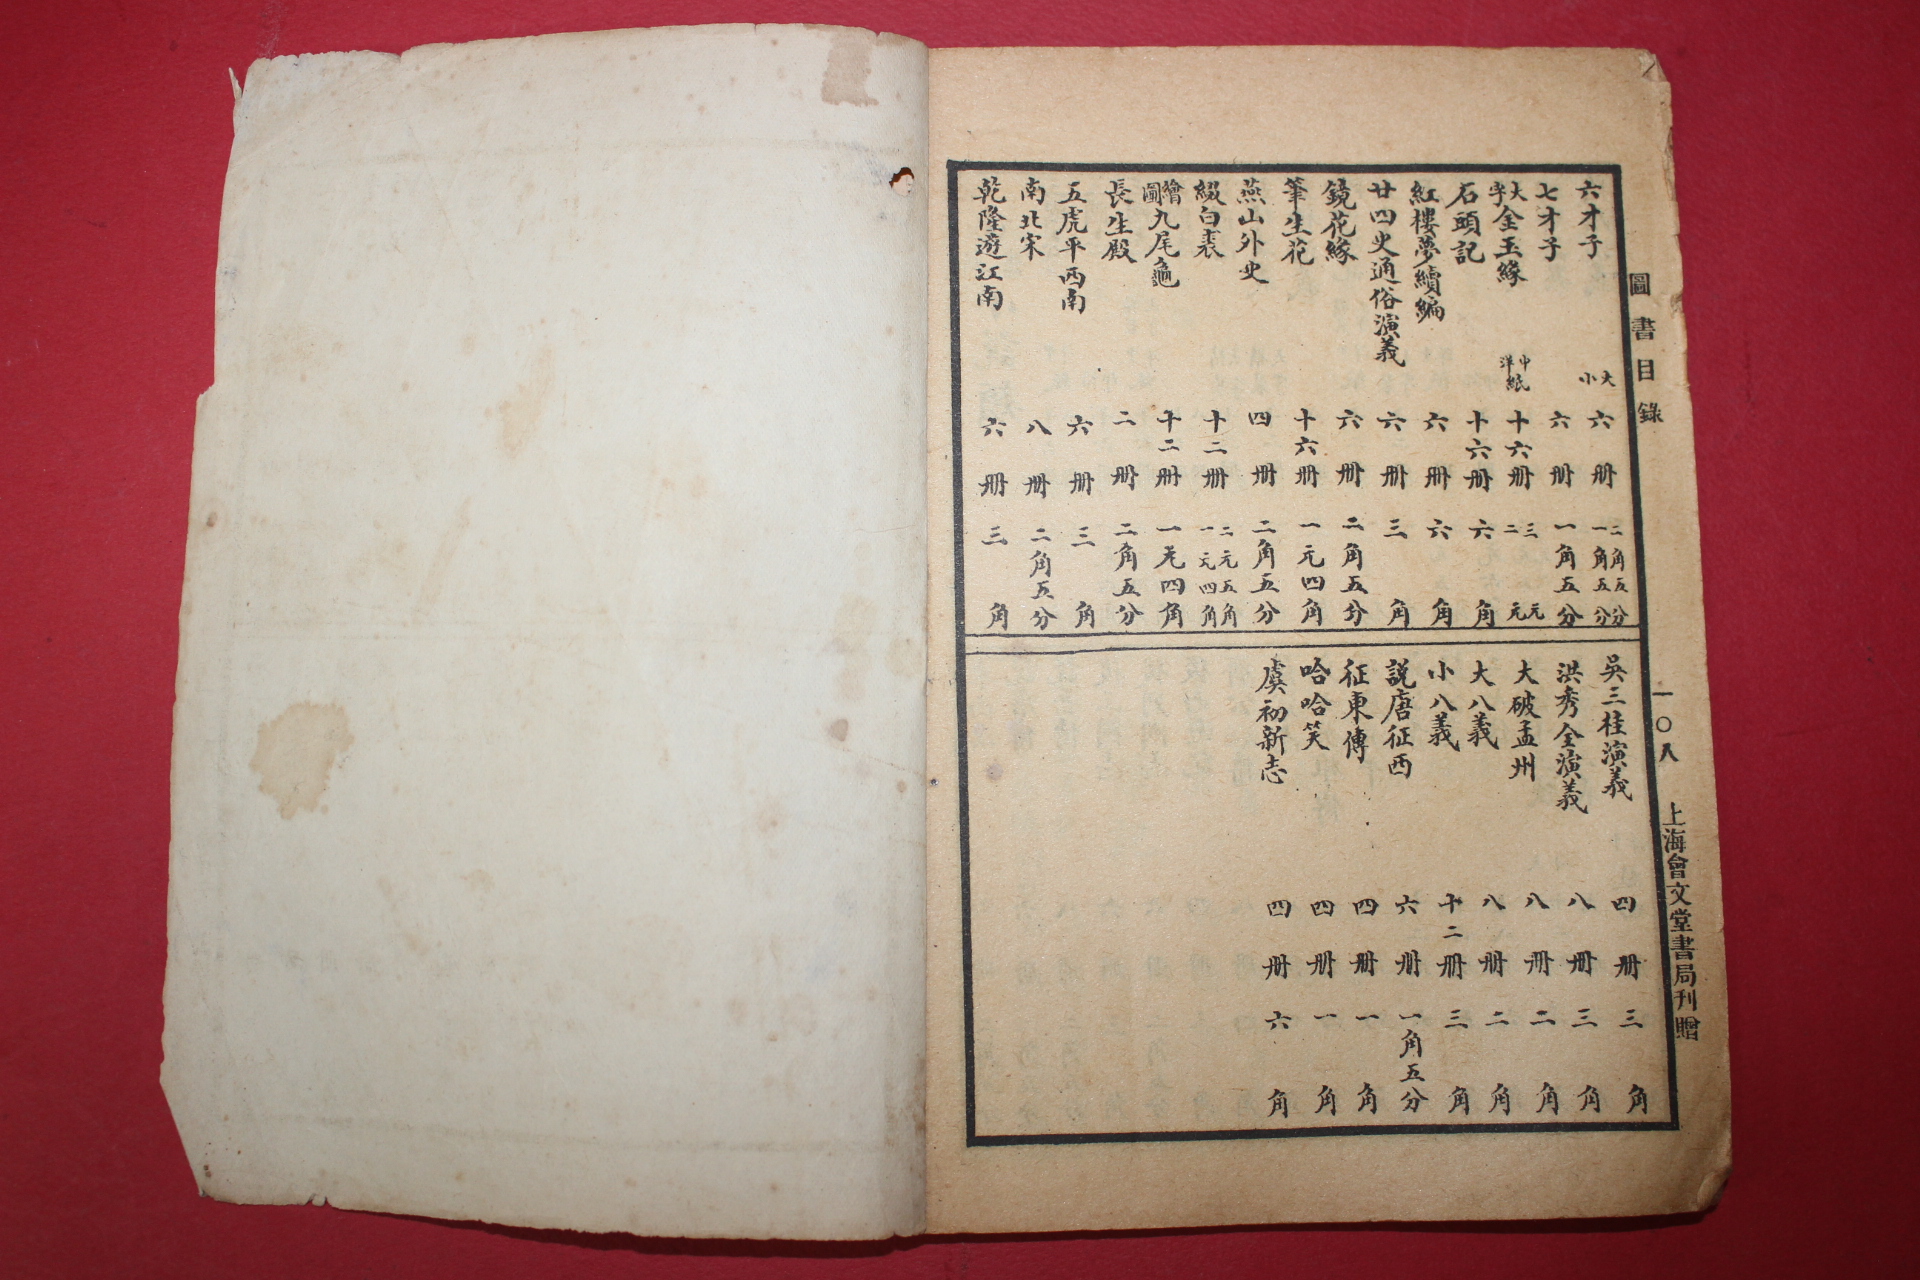 圖書目錄 一〇八 上海會文堂書局刊贈
六才子 大小 六册 二角五分 一角五分
七才子 六册 一角五分
大字金玉緣 中洋紙 十六册 三元 二元
石頭記 十六册 六角
紅樓夢續編 六册 六角
廿四史通俗演義 六册 三角
鏡花緣 六册 二角五分
筆生花 十六册 一元四角
燕山外史 四册 二角五分
綴白裘 十二册 二元五角 一元四角
繪圖九尾龜 十二册 一元四角
長生殿 二册 二角五分
五虎平西南 六册 三角
南北宋 八册 二角五分
乾隆遊江南 六册 三角
吳三桂演義 四册 三角
洪秀全演義 八册 三角
大破孟州 八册 二角
大八義 八册 二角
小八義 十二册 三角
説唐征西 六册 一角五分
征東傳 四册 一角
哈哈笑 四册 一角
虞初新志 四册 六角